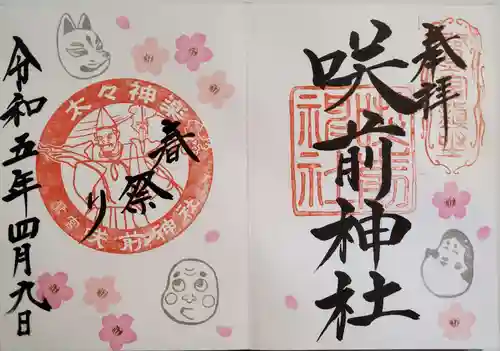 奉拝
咲前神社
太々神楽
春祭り
咲前神社
令和五年四月九日